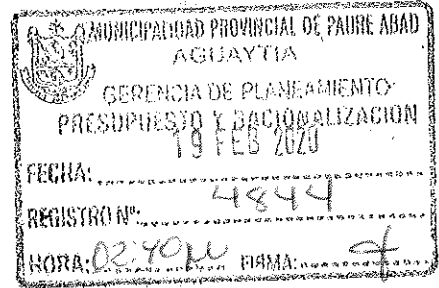 MUNICIPALIDAD PROVINCIAL DE PADRE ABAD
AGUAYTIA
GERENCIA DE PLANEAMIENTO
PRESUPUESTO Y RACIONALIZACION
19 FEB 2020
FECHA:
REGISTRO Nº: 4844
HORA: 02:40 FIRMA: